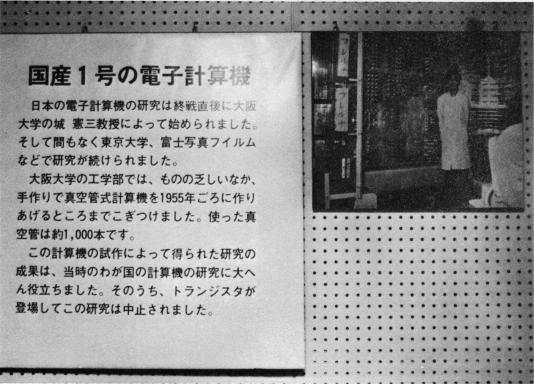 国産1号の電子計算機
日本の電子計算機の研究は終戦直後に大阪
大学の城 憲三教授によって始められました。
そして間もなく東京大学、富士写真フイルム
などで研究が続けられました。
大阪大学の工学部では、ものの乏しいなか、
手作りで真空管式計算機を1955年ごろに作り
あげるところまでこぎつけました。使った真
空管は約1,000本です。
この計算機の試作によって得られた研究の
成果は、当時のわが国の計算機の研究に大へ
ん役立ちました。そのうち、トランジスタが
登場してこの研究は中止されました。